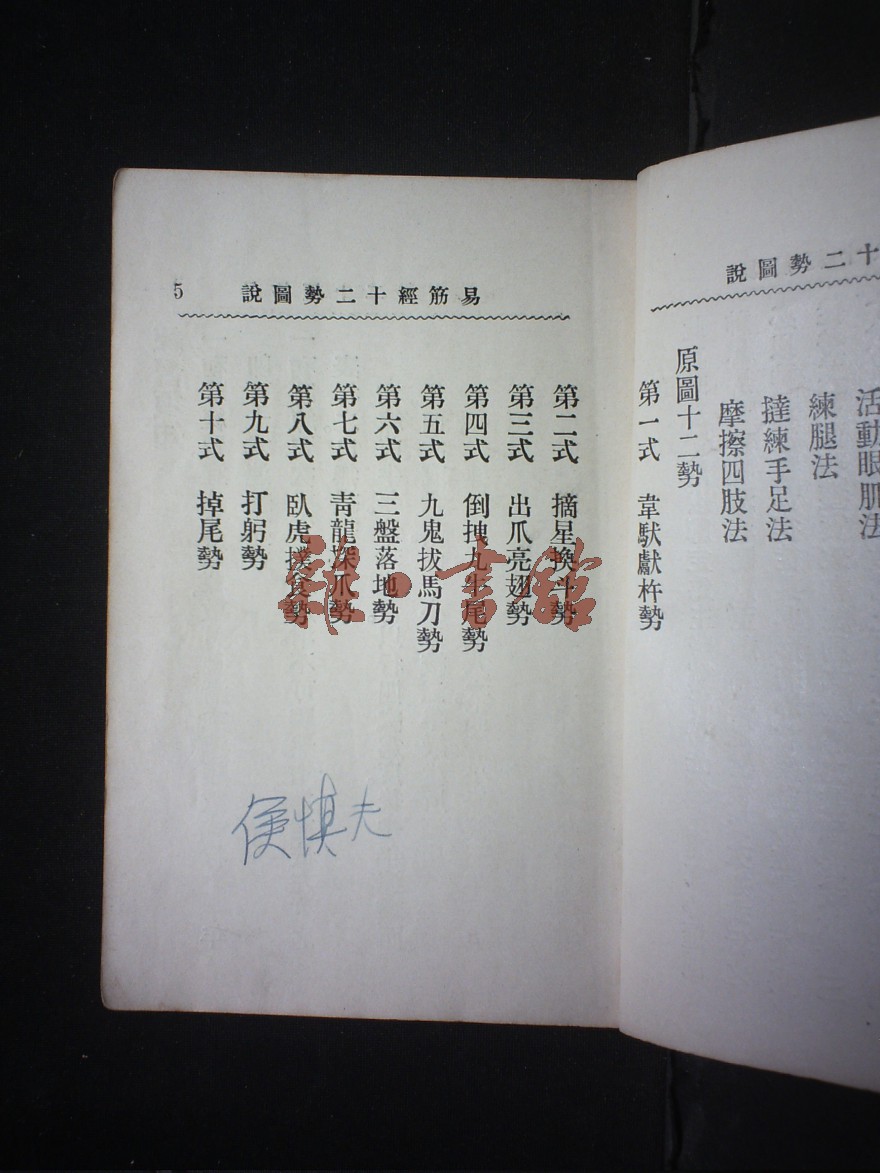 十二勢圖說
活動眼肌法
練腿法
撻練手足法
摩擦四肢法
原圖十二勢
第一式 韋馱獻杵勢
易筋經十二勢圖說 5
第二式 摘星換斗勢
第三式 出爪亮翅勢
第四式 倒拽九牛尾勢
第五式 九鬼拔馬刀勢
第六式 三盤落地勢
第七式 青龍探爪勢
第八式 臥虎撲食勢
第九式 打躬勢
第十式 掉尾勢
慎夫
雜·書館